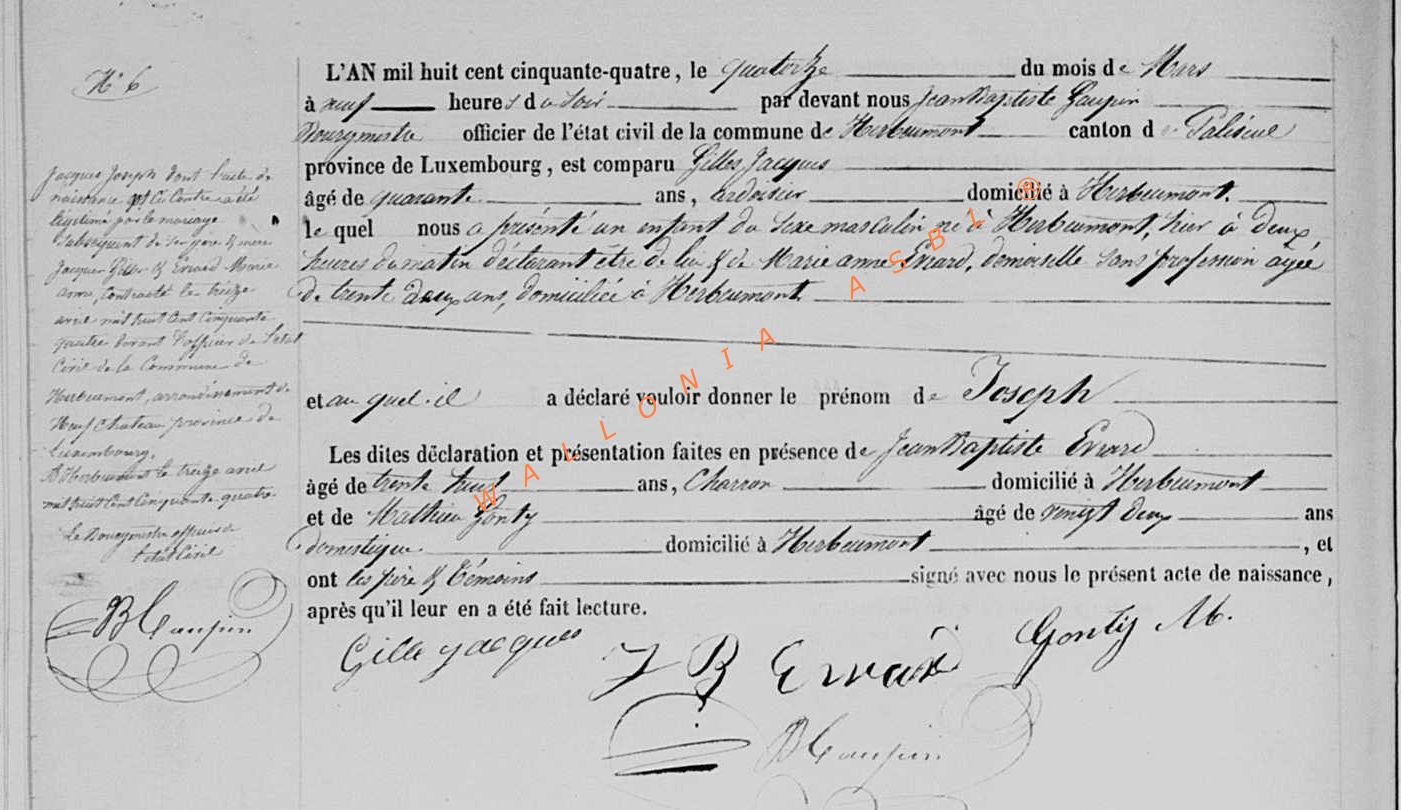 N° 6
L'AN mil huit cent cinquante-quatre, le quatorze du mois de Mars
à neuf heures du soir par devant nous Jean Baptiste Gaupin
Bourgmestre officier de l'état civil de la commune de Herbeumont canton de Paliseul
province de Luxembourg, est comparu Gilles Jacques
âgé de quarante ans, ardoisier domicilié à Herbeumont.
le quel nous a présenté un enfant du sexe masculin né à Herbeumont, hier à deux
heures du matin déclarant être de lui & de Marie anne Evrard, demoiselle sans profession agée
de trente deux ans, domiciliée à Herbeumont.
et au quel il a déclaré vouloir donner le prénom de Joseph
Les dites déclaration et présentation faites en présence de Jean Baptiste Evrard
âgé de trente huit ans, Charron domicilié à Herbeumont
et de Mathieu Gonty âgé de vingt deux ans
domestique domicilié à Herbeumont, et
ont les père & témoins signé avec nous le présent acte de naissance,
après qu'il leur en a été fait lecture.
Gille Jacques
J B Evrard
Gontij M.
B Gaupin
Jacques Joseph dont l'acte de
naissance est Ci Contre a été
légitimé par le mariage
Subséquent de ses père & mère
Jacques Gilles & Evrard Marie
anne, Contracté le treize
avril mil huit cent Cinquante
quatre devant l'officier de l'état
Civil de la Commune de
Herbeumont, arrondissement de
Neufchateau province de
Luxembourg.
A Herbeumont le treize avril
mil huit Cent Cinquante quatre
Le Bourgmestre officier de
l'état Civil
B Gaupin
WALLONIA ASBL ®